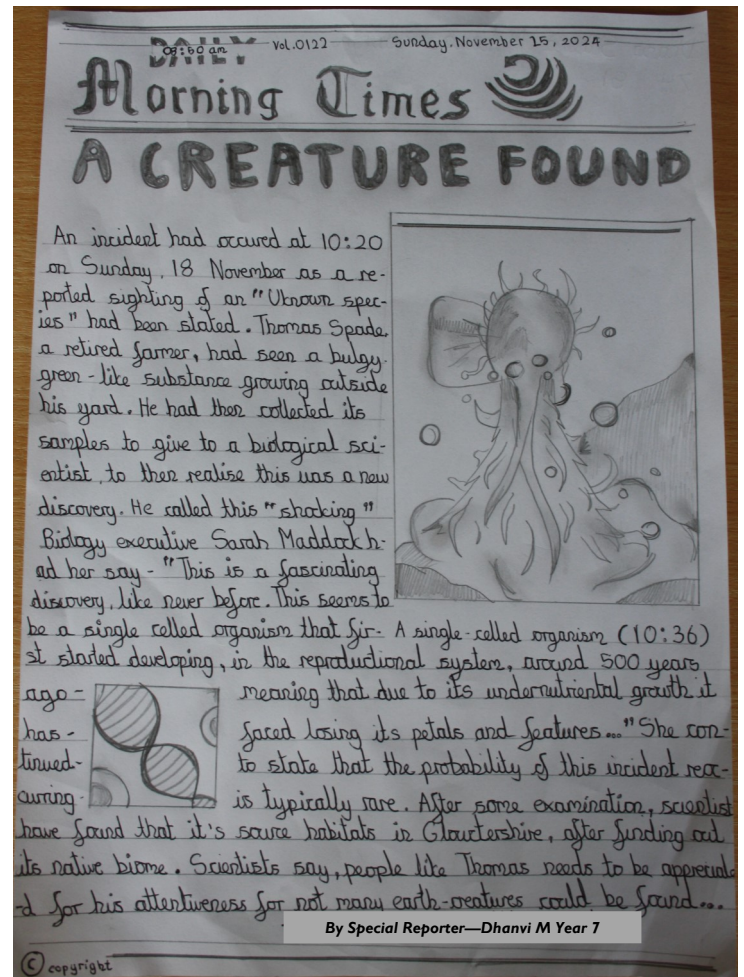 DAILY
09:50 am
Vol.0122
Sunday, November 25, 2024
Morning Times
A CREATURE FOUND
An incident had occured at 10:20
on Sunday, 18 November as a re-
ported sighting of an "Uknown spec-
ies" had been stated. Thomas Spade,
a retired farmer, had seen a bulgy
green-like substance growing outside
his yard. He had then collected its
samples to give to a biological sci-
entist, to then realise this was a new
discovery. He called this "shocking"
Biology executive Sarah Maddock h-
ad her say - "This is a fascinating
discovery, like never before. This seems to
be a single celled organism that fir-
A single-celled organism (10:36)
st started developing, in the reproductional system, around 500 years
ago - meaning that due to its undernutriental growth it
has - faced losing its petals and features..." She con-
tinued - to state that the probability of this incident reoc-
curring - is typically rare. After some examination, scientist
have found that it's source habitats in Glouctershire, after funding out
its native biome. Scientists say, people like Thomas needs to be appreciate
-d for his attentiveness for not many earth-creatures could be found...
By Special Reporter—Dhanvi M Year 7
© copyright